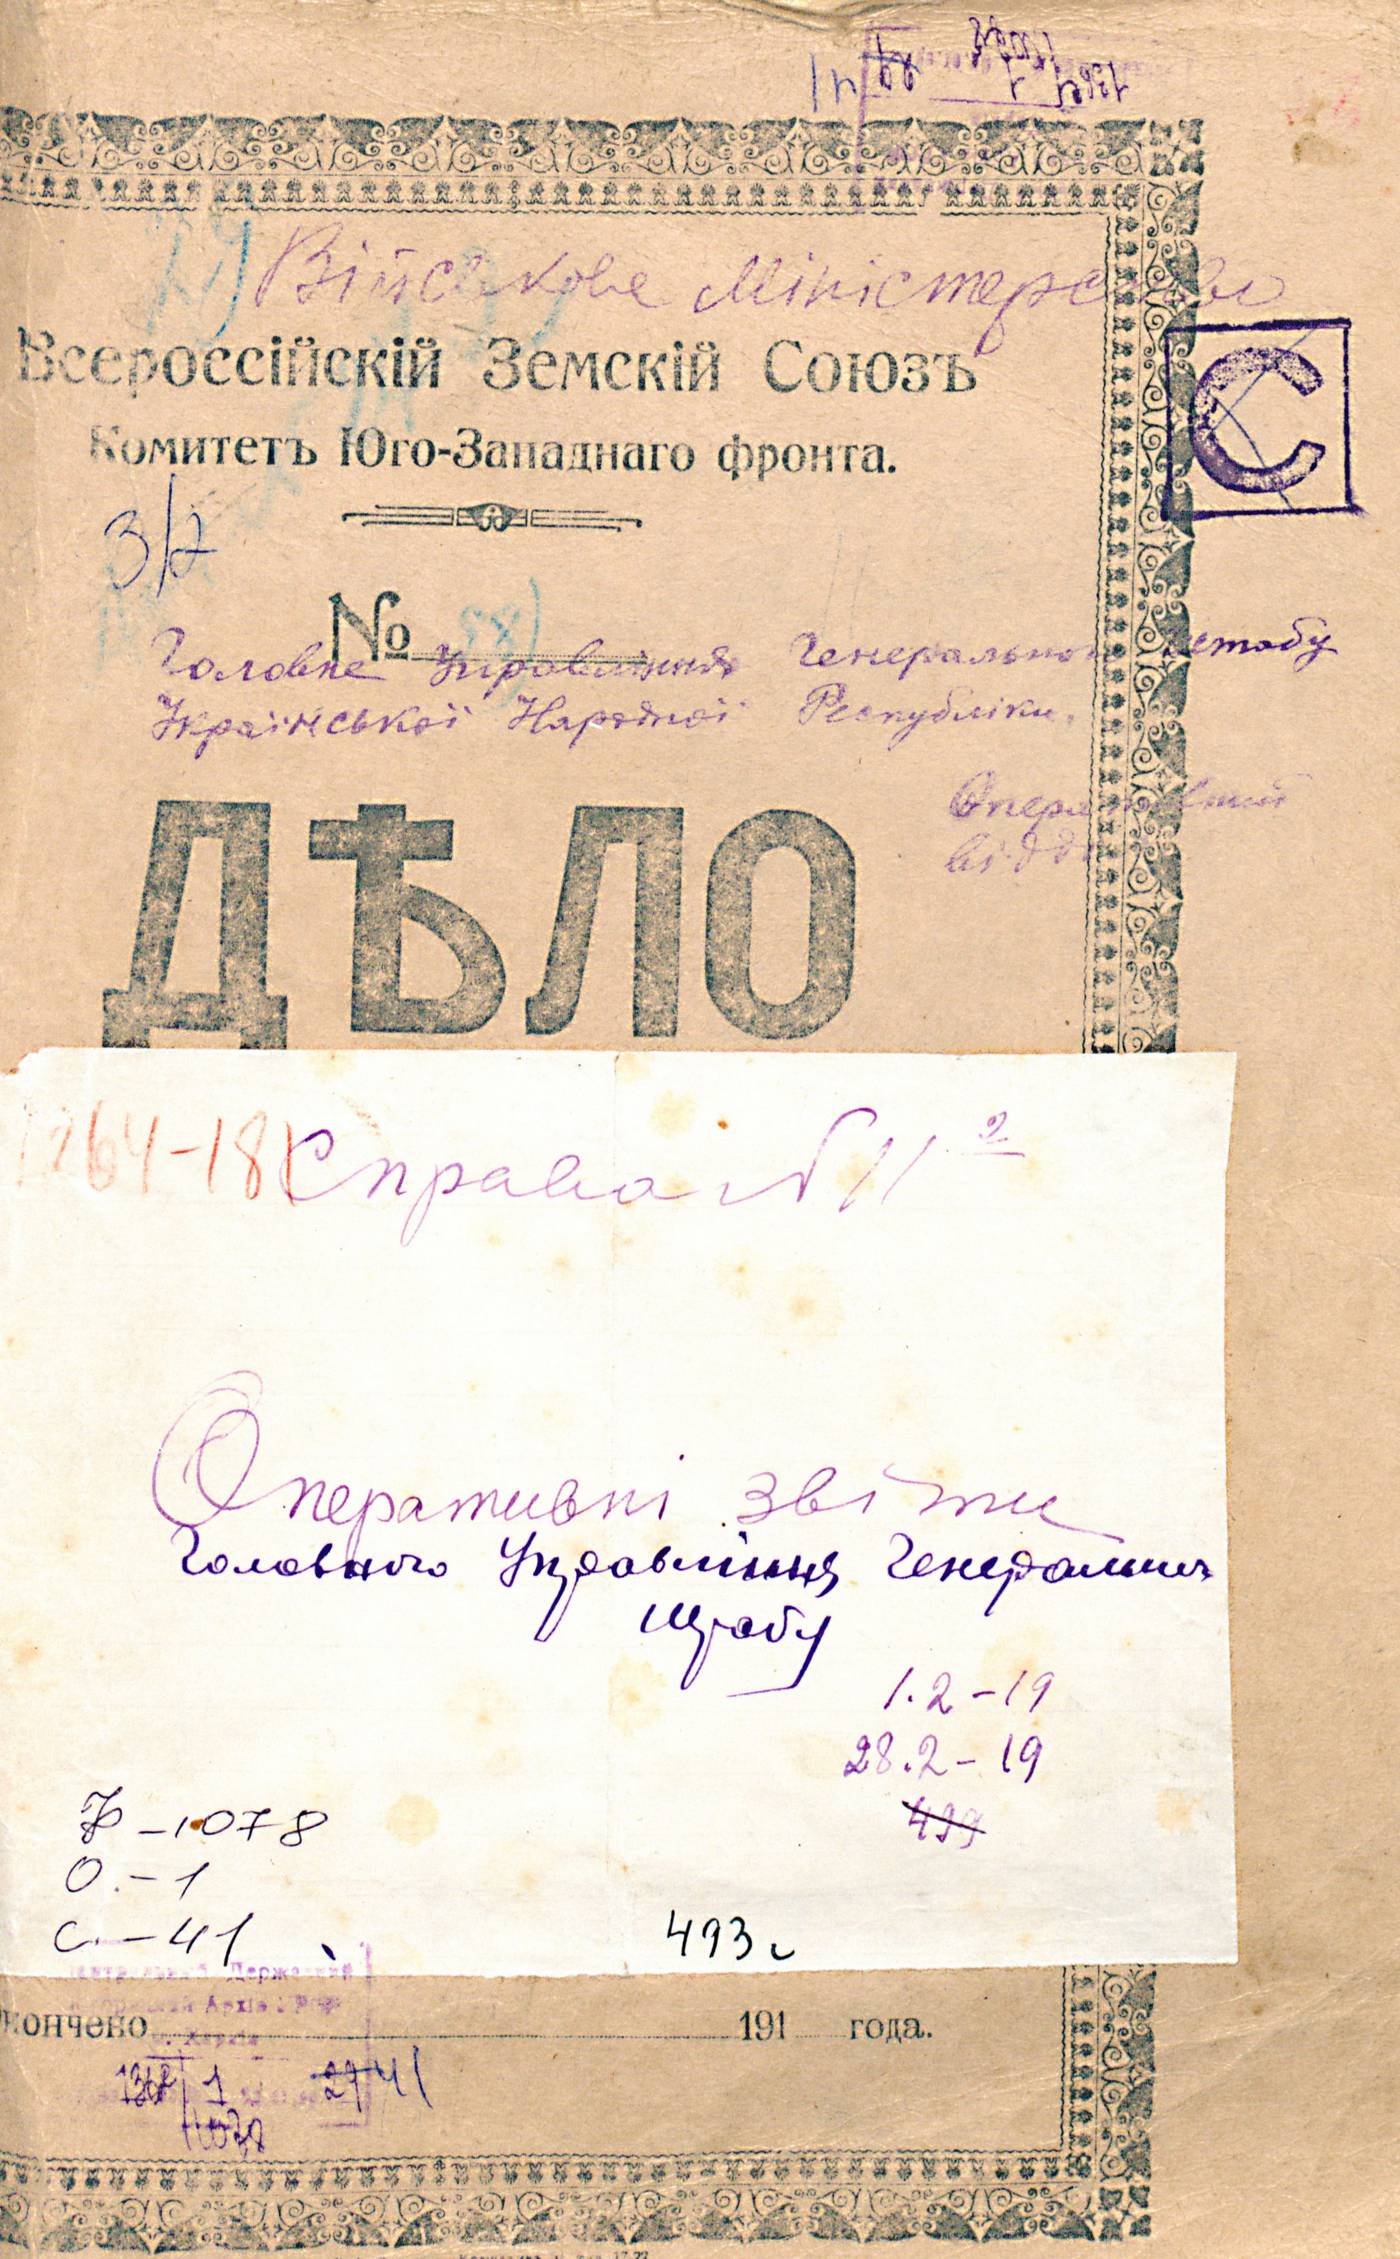 Військове Міністерство
Всероссійскій Земскій Союзъ
Комитетъ Юго-Западнаго фронта.
С
3/2
№
Головне Управління Генерального Штабу
Української Народної Республіки.
Оперативний
відділ
ДѢЛО
264-18
Справа № 11
Оперативні звіти
Головного Управління Генерального
Штабу
1.2-19
28.2-19
499
Ф-1078
О.-1
С.-41
493
Центральний Державний
Архів
м. Харків
Окончено 191 года.
1 29 41
1078